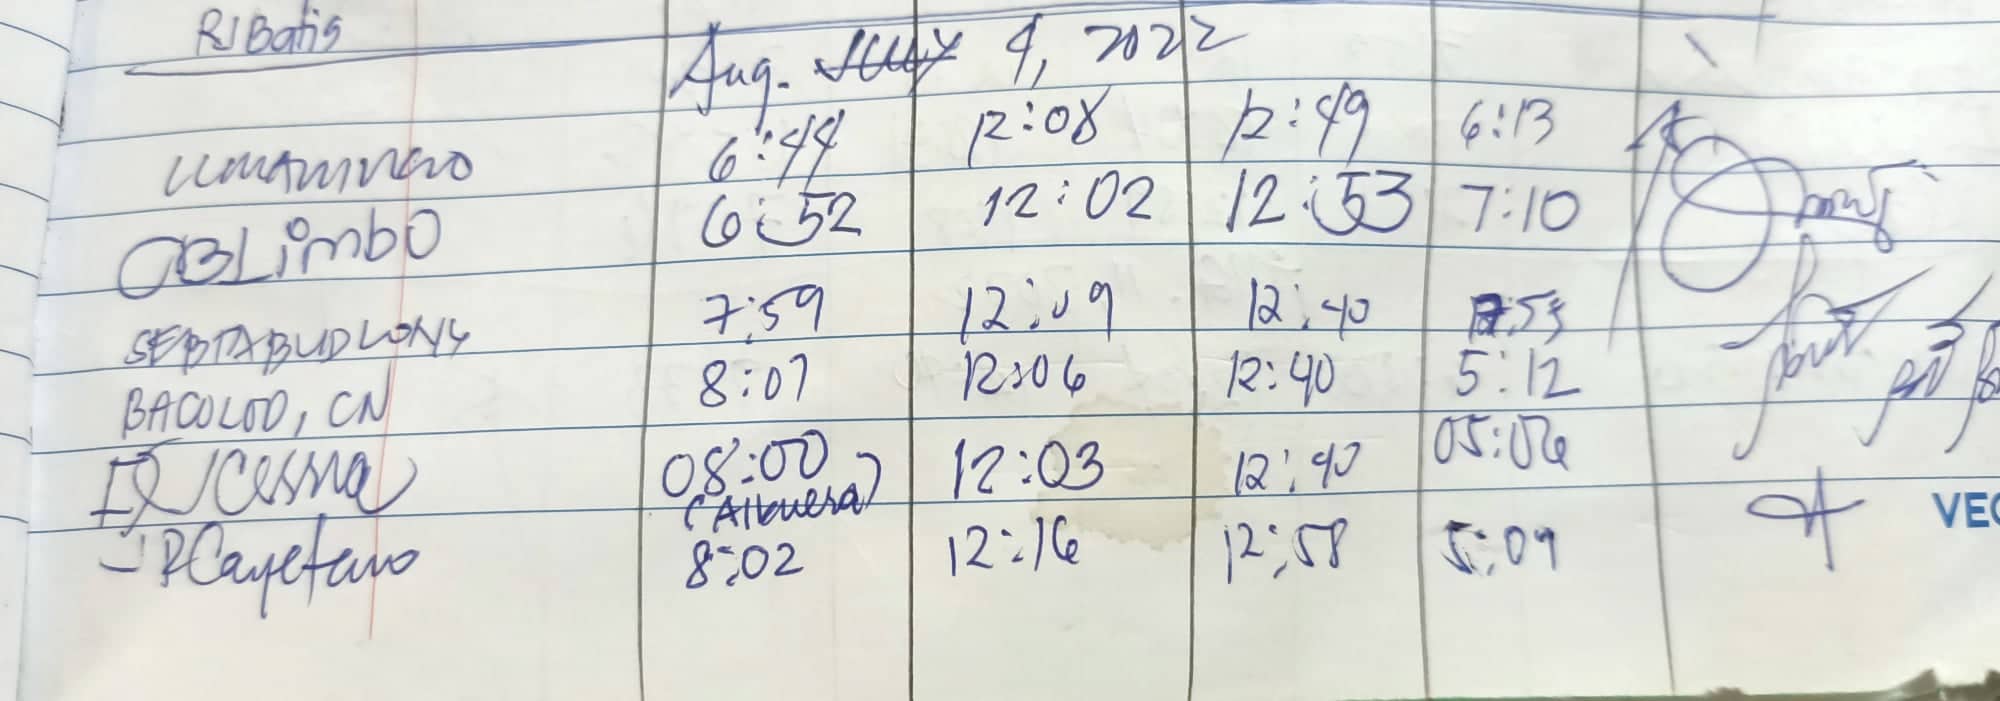 RJBatis
Aug. July 4, 2022
6:44 12:08 12:49 6:13
OBLimbo 6:52 12:02 12:53 7:10
SEBTABUDLONG 7:59 12:09 12:40
BACOLOD, CN 8:07 12:06 12:40 5:12
08:00 12:03 12:40 05:06
(Albuera)
JPCayetano 8:02 12:16 12:58 5:09
VEC